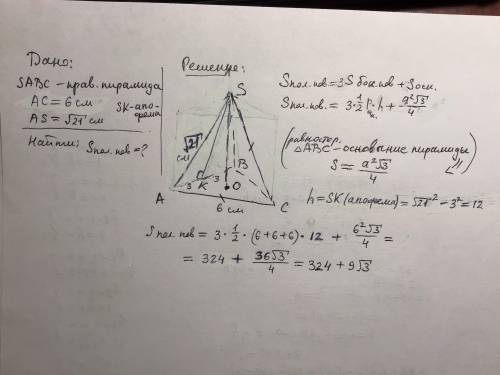 Дано:
SABC – прав. пирамида
AC = 6 см
SK-апофема
AS = √21 см
Найти: Sпол.пов = ?
Решение:
S
√21
см
B
3
K
3
O
A
6 см
C
Sпол.пов = 3S бок.пов + Sосн.
Sпол.пов. = 3·1/2 p·h + a²√3/4
(равностор.
△ABC – основание пирамиды
S = a²√3/4)
h = SK (апофема) = √21² - 3² = 12
Sпол.пов = 3·1/2·(6+6+6)·12 + 6²√3/4 =
= 324 + 36√3/4 = 324 + 9√3